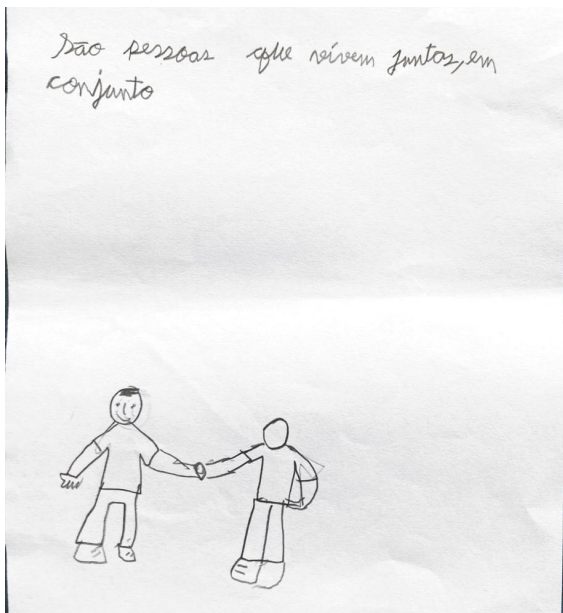 São pessoas que vivem juntas, em
conjunto